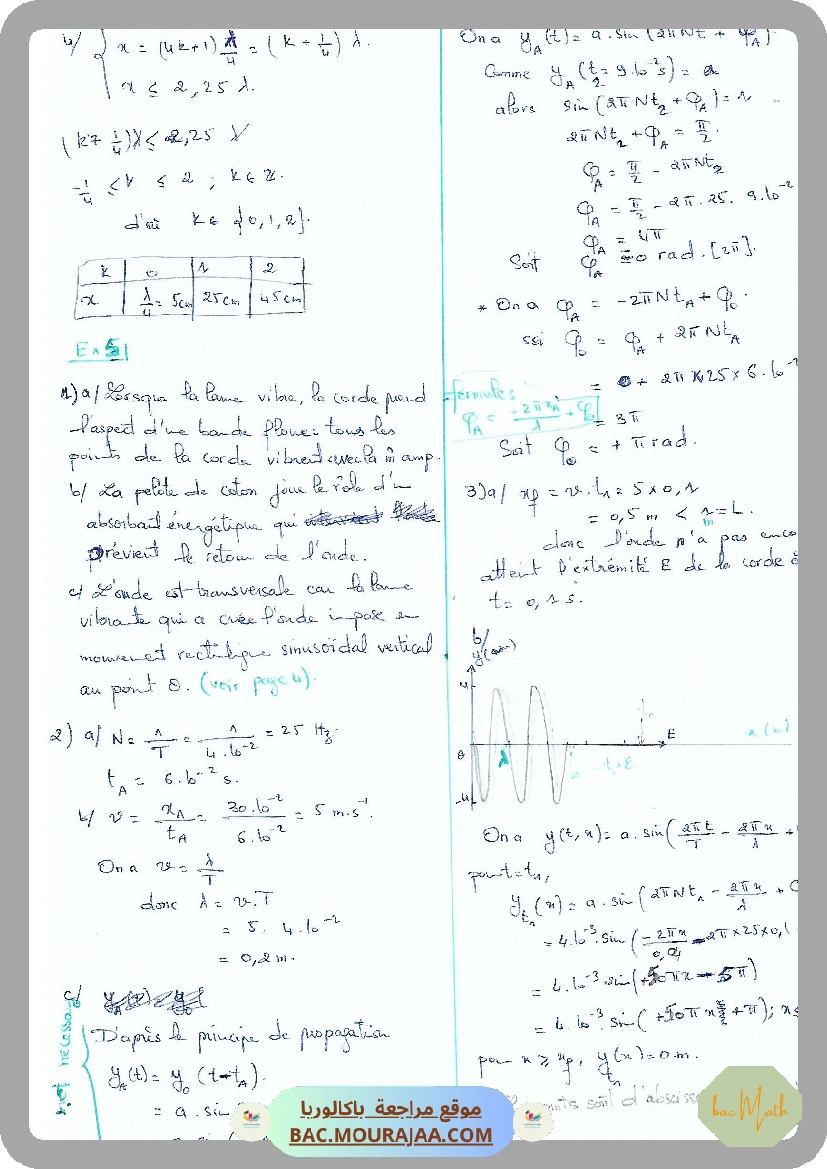 b/ { x = (4k+1) λ/4 = (k + 1/4) λ.
x ≤ 2,25 λ.
(k + 1/4)λ ≤ 2,25 λ
-1/4 ≤ k ≤ 2 ; k ∈ ℤ.
d'où k ∈ {0,1,2}.
k | 0 | 1 | 2
x | λ/4 = 5cm | 25cm | 45cm
Ex 5
1) a/ Lorsque la lame vibre, la corde prend
l'aspect d'une bande floue: tous les
points de la corde vibrent avec la m̂ amp.
b/ La pelote de coton joue le rôle d'un
absorbant énergétique qui
prévient le retour de l'onde.
c/ L'onde est transversale car la lame
vibrante qui a créé l'onde impose un
mouvement rectiligne sinusoïdal vertical
au point O. (voir page 4).
2) a/ N = 1/T = 1/4.10⁻² = 25 Hz.
t_A = 6.10⁻² s.
b/ v = x_A/t_A = 30.10⁻²/6.10⁻² = 5 m.s⁻¹.
On a v = λ/T
donc λ = v.T
= 5. 4.10⁻²
= 0,2 m.
c/
D'après le principe de propagation
y_A(t) = y_0 (t-t_A).
= a. sin
On a y_A(t) = a. sin (2πNt + φ_A).
Comme y_A (t₂ = 9.10⁻² s) = a
alors sin (2πNt₂ + φ_A) = 1
2πNt₂ + φ_A = π/2.
φ_A = π/2 - 2πNt₂
φ_A = π/2 - 2π. 25. 9.10⁻²
φ_A = 4π
Soit φ_A = 0 rad. [2π].
* On a φ_A = -2πNt_A + φ_0.
ssi φ_0 = φ_A + 2πNt_A
= 0 + 2π × 25 × 6.10⁻²
formule:
φ_A = -2πx_A/λ + φ_0
= 3π
Soit φ_0 = + π rad.
3) a/ x_f = v. t₁ = 5 × 0,1
= 0,5 m < 1 m = L.
donc l'onde n'a pas enco
atteint l'extrémité E de la corde à
t = 0,1 s.
b/
y(
4
0
λ
E
x (m)
-4
On a y(t,x) = a. sin(2πt/T - 2πx/λ +
pour t = t₁,
y_t₁(x) = a. sin (2πNt₁ - 2πx/λ +
= 4.10⁻³. sin (-2πx/
= 4.10⁻³ sin(+50πx - 5π)
= 4.10⁻³. sin (+50πx + π); x ≤
pour x ≥ x_f, y_t₁(x) = 0 m.
sont d'abscisse
موقع مراجعة باكالوريا
BAC.MOURAJAA.COM
bac Math